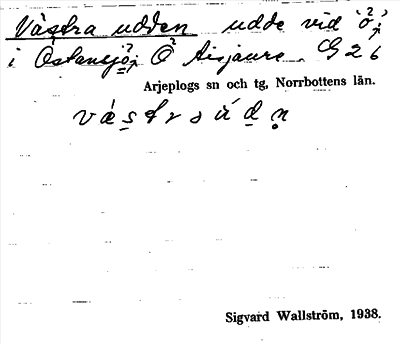 Västra udden udde vid 'ö,'
i Östansjö, Ö Aisjaure. G 2 6
Arjeplogs sn och tg, Norrbottens län.
västrsúdn
Sigvard Wallström, 1938.